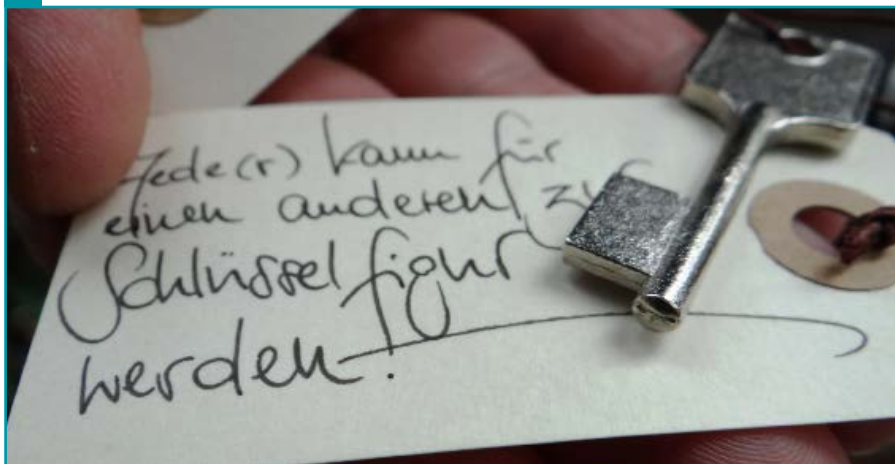 Jede(r) kann für
einen anderen zur
Schlüsselfigur
werden!